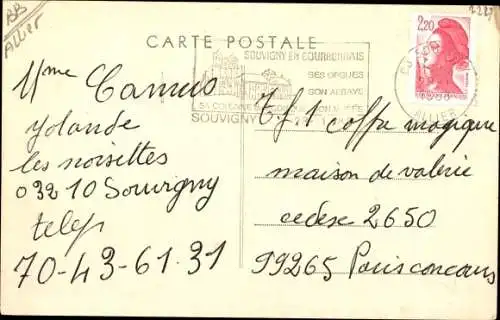 BB
Allier
2227
CARTE POSTALE
2,20
SOUVIGNY EN BOURBONNAIS
SES ORGUES
SON ABBAYE
SOUVIGNY
ALLIER
Mme Camus
Yolande
les noisettes
03210 Souvigny
telep
70-43-61.31
Tf1 coffre magique
maison de valerie
cedex 2650
99265 Paris concours